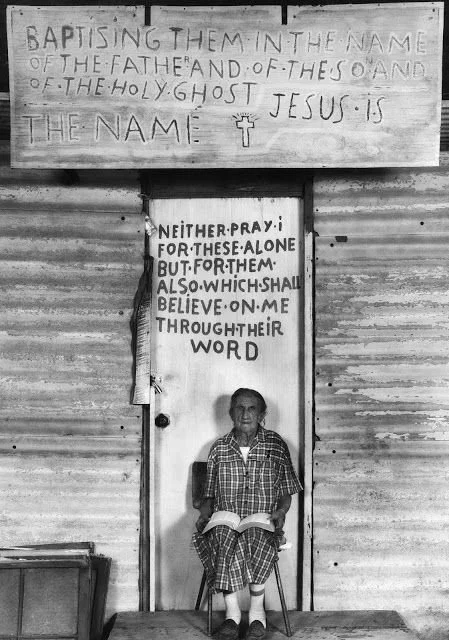 BAPTISING THEM IN·THE·NAME
OF·THE·FATHER·AND·OF·THE·SON·AND
OF·THE·HOLY·GHOST JESUS·IS
THE·NAME
NEITHER·PRAY·i
FOR·THESE·ALONE
BUT·FOR·THEM·
ALSO·WHICH·SHALL
BELIEVE·ON·ME
THROUGH·THEIR
WORD